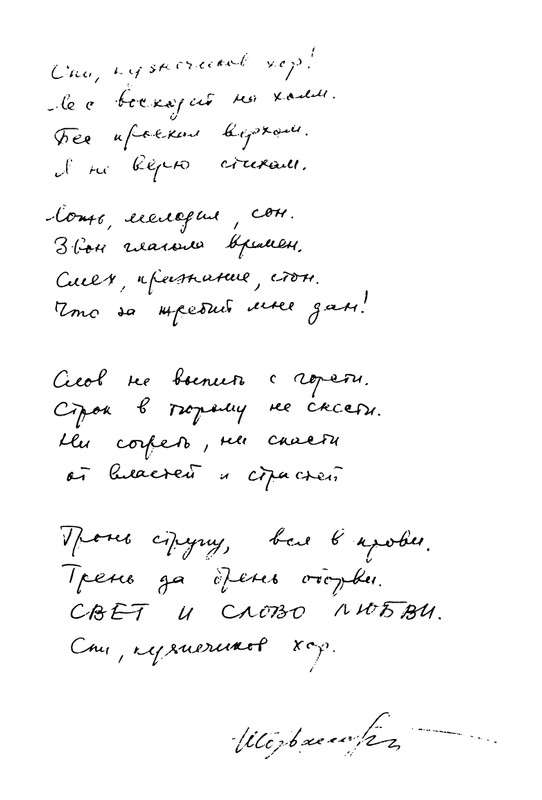 Спи, кузнечиков хор!
Лес восходит на холм.
Бес проехал верхом.
Я не верю стихам.
Ложь, мелодия, сон.
Звон глагола времен.
Смех, признание, стон.
Что за жребий мне дан!
Слов не выпить с горсти.
Строк в тюрьму не снести.
Ни согреть, ни спасти
от властей и страстей
Тронь струну, вся в крови.
Трень да брень оторви.
СВЕТ И СЛОВО ЛЮБВИ.
Спи, кузнечиков хор.